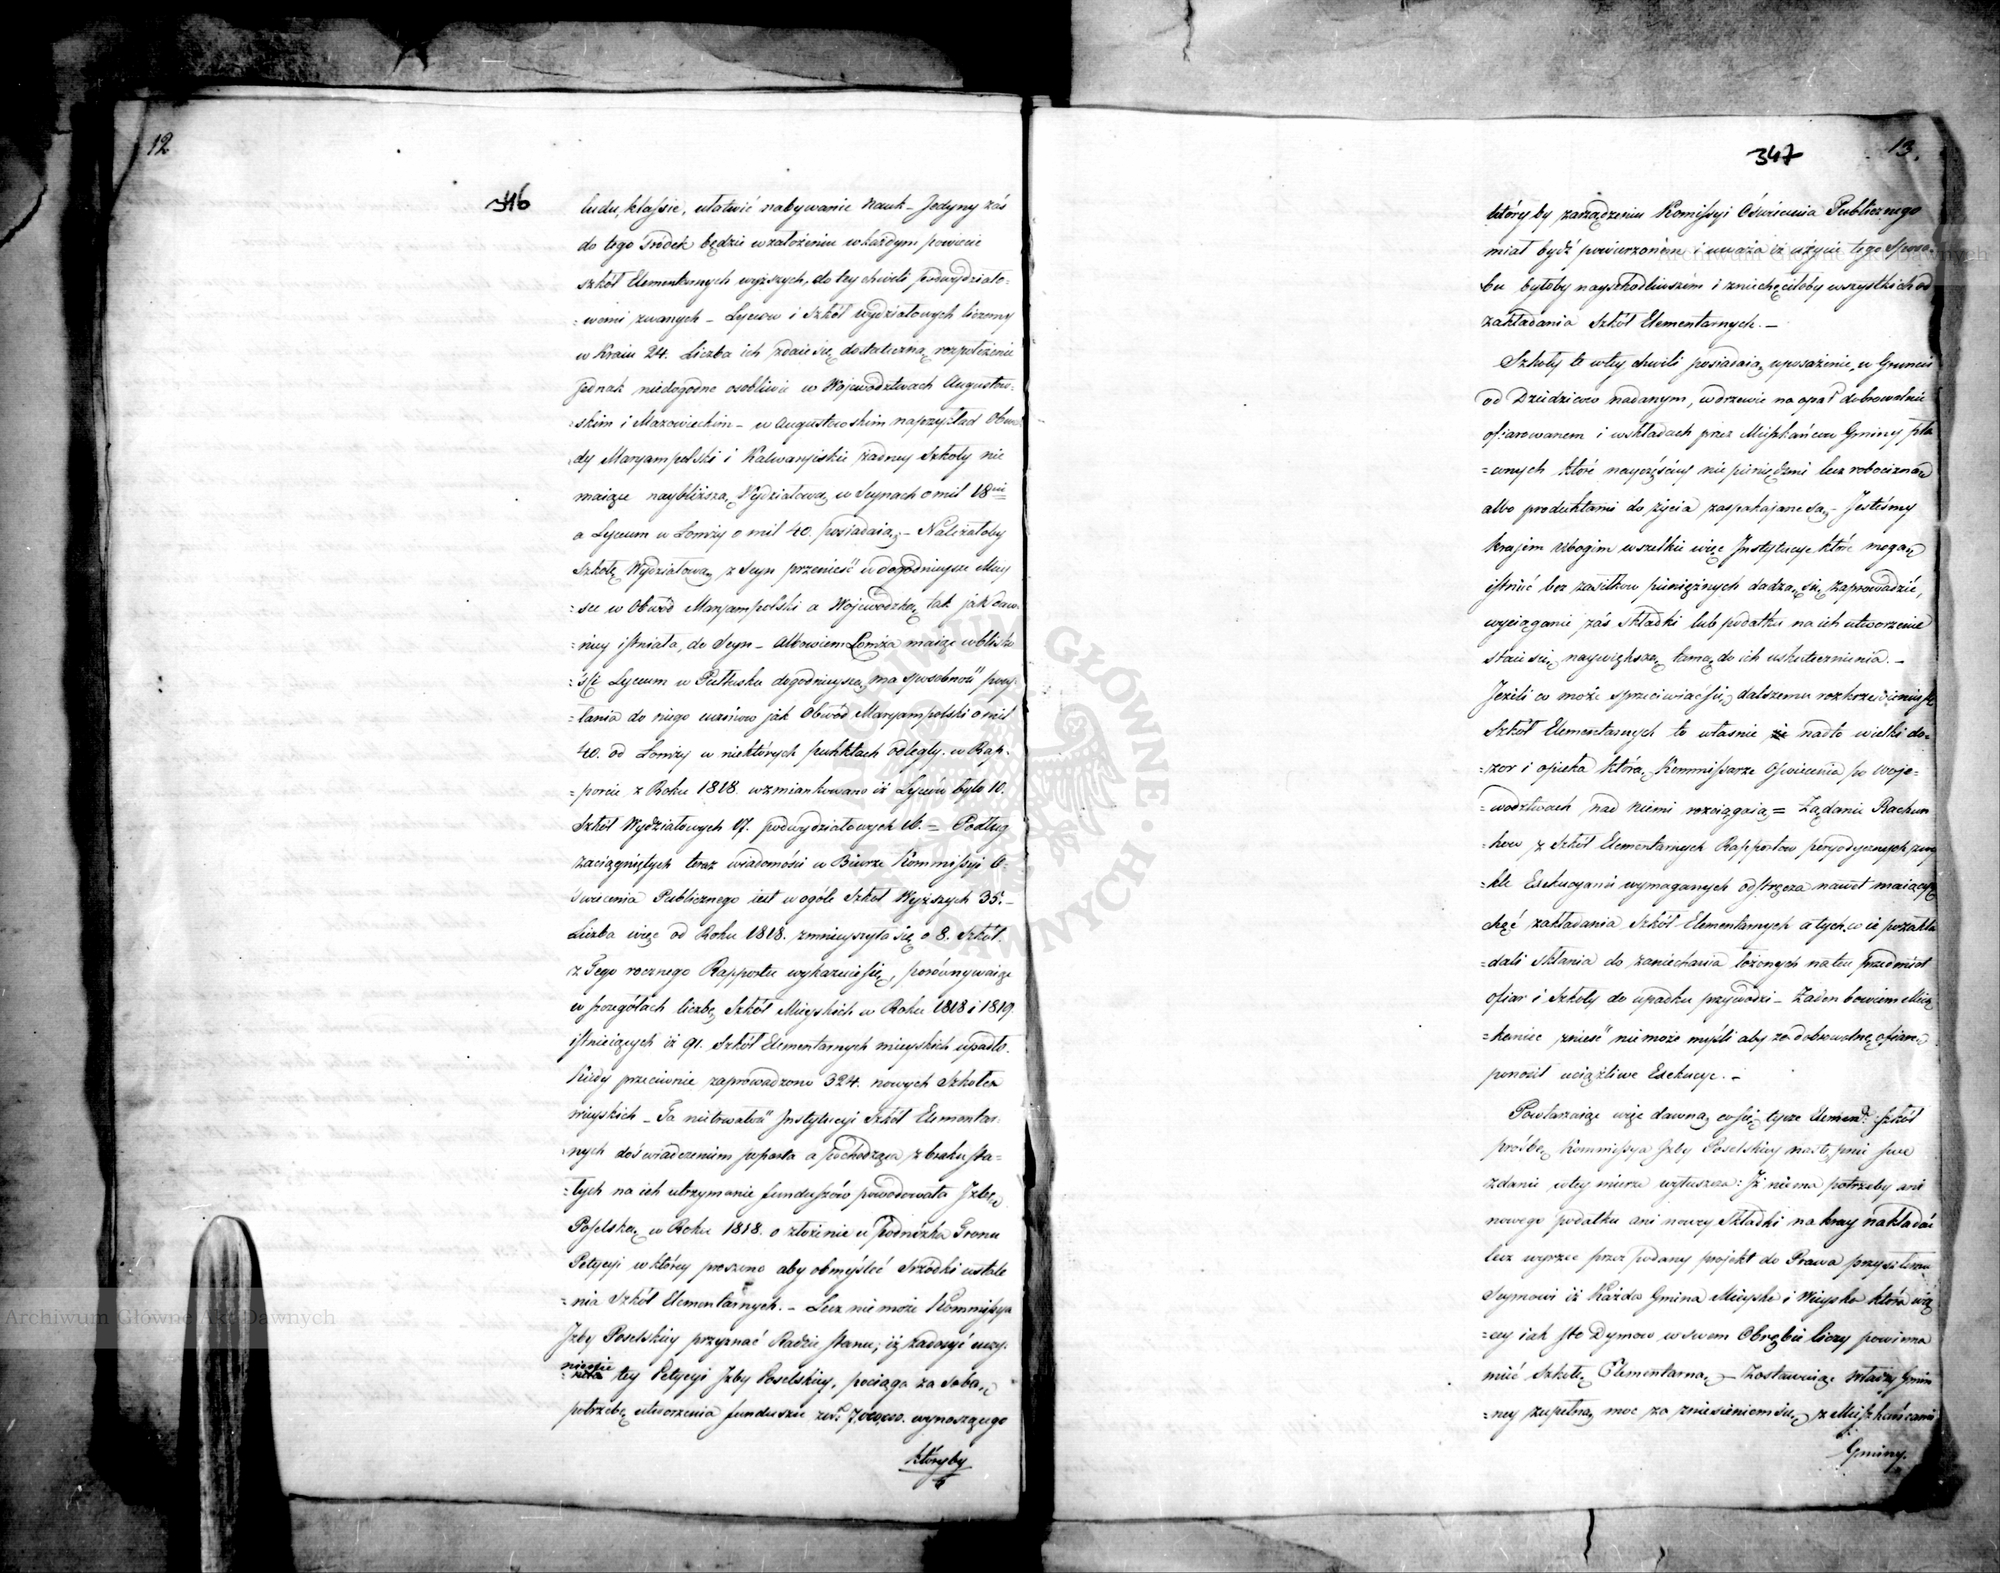 12
346
ludu, klassie, ułatwić nabywanie Nauk – Jedyny zaś
do tego Srzodek będzie w założeniu w każdym powiecie
szkół Elementarnych wyższych, do tey chwili podwydziało-
=wemi zwanych – Lyceów i Szkół wydziałowych liczemy
w Kraiu 24. Liczba ich zdaie się dostateczną, rozpołożenie
jednak niedogodne osobliwie w Województwach Augustow-
=skim i Mazowieckim – w Augustowskim naprzykład Obwo-
dy Maryampolski i Kalwaryiskie żadney Szkoły nie
maiąc naybliższą Wydziałową w Seynach o mil 18
a Lyceum w Łomży o mil 40. posiadaią; – Należałoby
Szkołę Wydziałową z Seyn przenieść w dogodnieysze Miey
=sce w Obwód Maryampolski a Wojewódzką tak jak daw-
=niey istniała, do Seyn – Albowiem Łomża maiąc w blisko
=ści Lyceum w Pułtusku dogodnieyszą ma sposobność posy-
=łania do niego uczniów jak Obwód Maryampolski o mil
40. od Łomży w niektórych punktach odległy. w Rap-
=porcie z Roku 1818. wzmiankowano iż Lyceów było 10.
Szkół Wydziałowych 17. podwydziałowych 16. = Podług
zaciągniętych teraz wiadomości w Biurze Kommissyi O-
świecenia Publicznego iest w ogóle Szkół Wyższych 35. –
Liczba więc od Roku 1818. zmnieyszyła się o 8. Szkół.
z Tego rocznego Rapportu wykazuie się, porównywaiąc
w szczegółach liczbę Szkół Mieyskich w Roku 1818 i 1819.
istnieiących iż 91. Szkół Elementarnych mieyskich upadło.
Kiedy przeciwnie zaprowadzono 324. nowych Szkółek
wieyskich – Ta nietrwałość Instytucyi Szkół Elementar-
nych doświadczeniem poparta a pochodząca z braku sta-
=łych na ich utrzymanie funduszów powodowała Izbę
Poselską w Roku 1818. o złożenie u podnóżka Tronu
Petycyi w którey proszono aby obmyśleć Srzodki ustale
=nia Szkół Elementarnych. – Lecz nie może Kommissya
Izby Poselskiey przyznać Radzie Stanu, iż zadosyć uczy-
nienie
tey Petycyi Izby Poselskiey, pociąga za sobą
potrzebę utworzenia funduszu złł. 7,000,000. wynoszącego
któryby
347
13.
któryby zarządzeniu Komissyi Oświecenia Publicznego
miał bydź powierzonem i uważa iż użycie tego Sposo-
bu byłoby nayszkodliwszém i zniechęciłoby wszystkich od
zakładania Szkół Elementarnych. –
Szkoły te w tey chwili posiadaią uposażenie, w Gruncie
od Dziedziców nadanym, w drzewie na opał dobrowolnie
ofiarowanem i w składach przez Mieszkańców Gminy pła
=conych które nayczęściey nie pieniędzmi lecz robocizną
albo produktami do życia zaspakajane są – Jesteśmy
krajem Ubogim wszelkie więc Instytucye które mogą
istnieć bez zasiłków pieniężnych dadzą się zaprowadzić,
wyciąganie zaś składki lub podatku na ich utworzenie
staie się naywiększą tamą do ich uskutecznienia. –
Jeżeli co może sprzeciwiać się dalszemu rozkrzewieniu się
Szkół Elementarnych to właśnie nadto wielki do-
=zor i opieka którą Kommissarze Oświecenia po Woje-
=wodztwach nad niemi rozciągaią = Żądanie Rachun
=ków z Szkół Elementarnych Rapportów peryodycznych zwy
=kle Exekucyami wymaganych odstręcza nawet maiących
chęć zakładania Szkół Elementarnych a tych, co ie pozakła
=dali skłania do zaniechania łożonych na ten przedmiot
ofiar i Szkoły do upadku przywodzi – Żaden bowiem Miesz
=kaniec znieść nie może myśli aby za dobrowolną ofiarę
ponosił uciążliwe Exekucye. –
Powtarzaiąc więc dawną co się tycze Elemen: Szkół
prośbę Kommissya Izby Poselskiey nastepnie swe
zdanie w tey mierze wytuszcza: Iż niema potrzeby ani
nowego podatku ani nowey Składki na kray nakładać
lecz wyrzec przez podany projekt do Prawa przyszłemu
Seymowi iż Każda Gmina Mieyska i Wieyska która wię
=cey iak sto Dymów w swem Obrębie liczy powinna
mieć Szkołę Elementarną – Zostawuiąc władzy Gmin
=ney zupełną moc za zniesieniem się z Mieszkańcami
Gminy.
Archiwum Główne Akt Dawnych